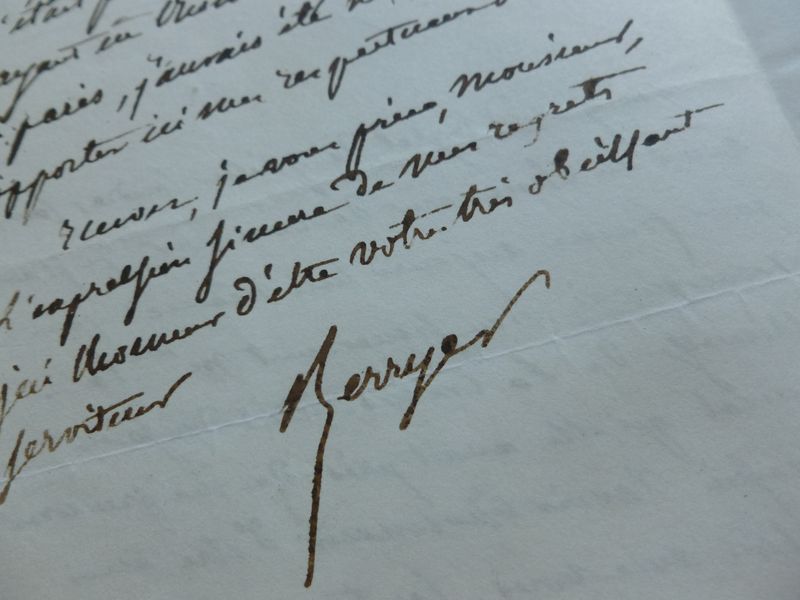 était
ayant eu
paris, j'aurais été
apporter ici mes respectueux
recevez, je vous prie, Monsieur,
l'expression sincere de mes regrets
j'ai l'honneur d'être votre très obéissant
serviteur
Berryer